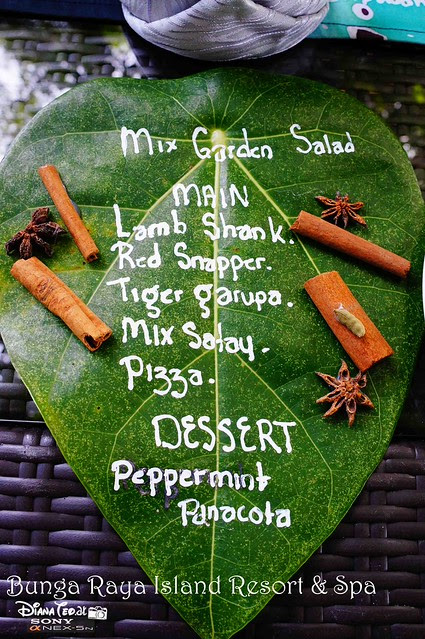 Mix Garden Salad
MAIN
Lamb Shank.
Red Snapper.
Tiger garupa.
Mix Satay.
Pizza.
DESSERT
Peppermint
Panacota
Bunga Raya Island Resort & Spa
Diana Teo.at
SONY
α NEX-5N